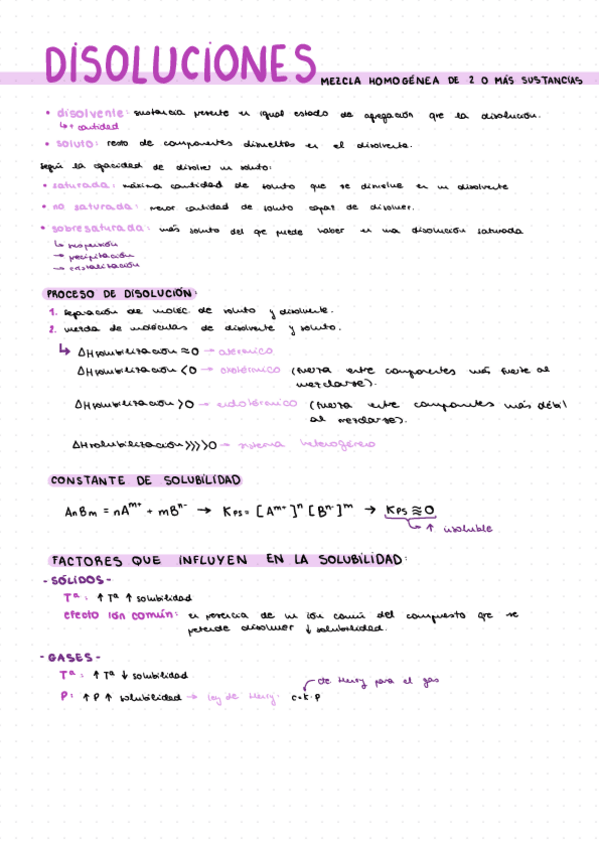 DISOLUCIONES MEZCLA HOMOGÉNEA DE 2 O MÁS SUSTANCIAS
• disolvente: sustancia presente en igual estado de agregación que la disolución.
↳ + cantidad
• soluto: resto de componentes disueltos en el disolvente.
Según la capacidad de disolver un soluto:
• saturada: máxima cantidad de soluto que se disuelve en un disolvente
• no saturada: menor cantidad de soluto capaz de disolver.
• sobresaturada: más soluto del que puede haber en una disolución saturada
↳ suspensión
→ precipitación
→ cristalización
PROCESO DE DISOLUCIÓN:
1. separación de molec de soluto y disolvente.
2. mezcla de moléculas de disolvente y soluto.
↳ ΔHsolubilización ≈ 0 → atérmico
ΔHsolubilización < 0 → exotérmico (fuerza entre componentes más fuerte al
mezclarse).
ΔHsolubilización > 0 → endotérmico (fuerza entre componentes más débil
al mezclarse).
ΔHsolubilización >>>> 0 → sistema heterogéneo
CONSTANTE DE SOLUBILIDAD
AnBm = nA^m+ + mB^n- → Kps = [A^m+]^n [B^n-]^m → Kps ≈ 0
↳ ↑ insoluble
FACTORES QUE INFLUYEN EN LA SOLUBILIDAD:
- SÓLIDOS -
Tª: ↑ Tª ↑ solubilidad
efecto ión común: en presencia de un ión común del compuesto que se
pretende disolver ↓ solubilidad.
- GASES -
Tª: ↑ Tª ↓ solubilidad
de Henry para el gas
P: ↑ P ↑ solubilidad → ley de Henry: c=k·P